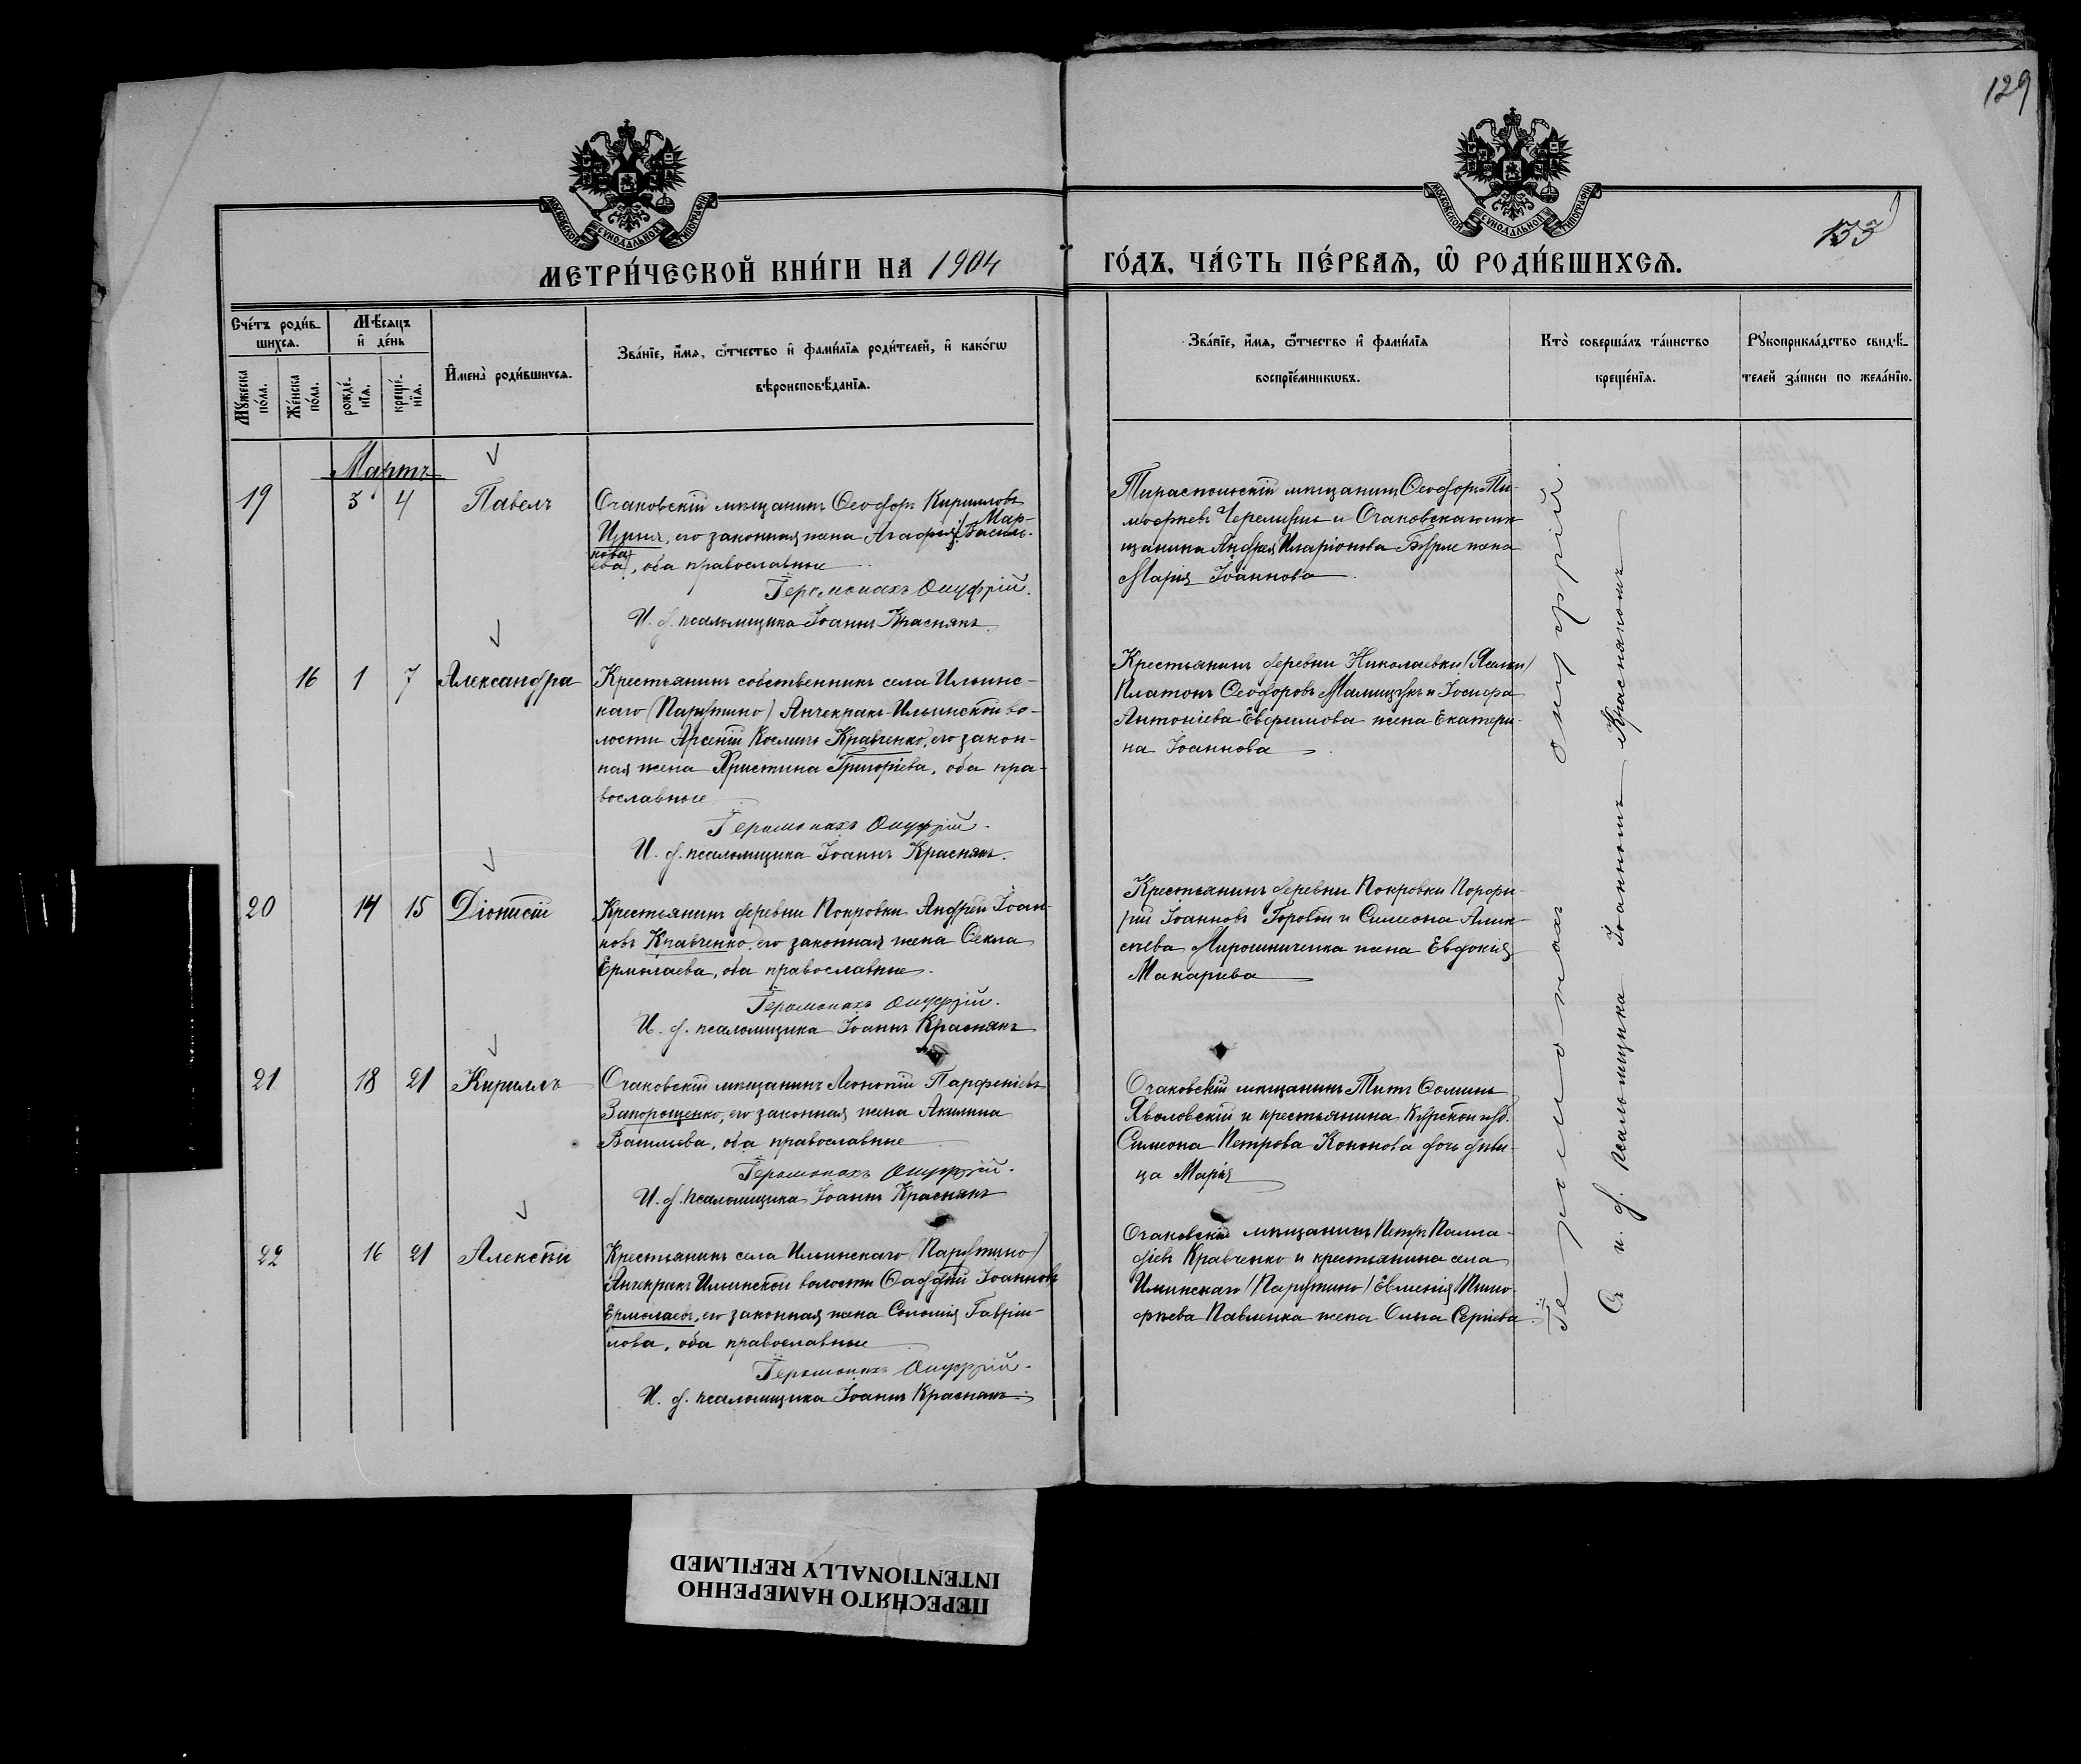 129
133
МОСКОВСКОЙ СУНОДАЛЬНОЙ ТИПОГРАФІИ
МОСКОВСКОЙ СУНОДАЛЬНОЙ ТИПОГРАФІИ
МЕТРИ́ЧЕСКОЙ КНИ́ГИ НА 1904
ГО́ДЪ, ЧА́СТЬ ПЕ́РВАЯ, Ѡ РОДИ́ВШИХСЯ.
Сче́тъ роди́в-
шихся.
Мѣ́сяцъ
и҆ де́нь
Му́жеска
по́ла.
Же́нска
по́ла.
рожде́-
нїя.
креще́-
нїя.
И҆мена̀ роди́вшихся.
Зва́нїе, и҆́мя, ѻ҆́тчество и҆ фами́лїя роди́телей, и҆ како́гѡ
вѣроисповѣ́данїя.
Зва́нїе, и҆́мя, ѻ҆́тчество и҆ фами́лїя
воспрїе́мникѡвъ.
Кто̀ соверша́лъ та́инство
креще́нїя.
Рукоприкла́дство свидѣ́-
телей за́писи по жела́нїю.
Мартъ
19 3 4 Павелъ
Очаковскій мѣщанинъ Ѳеодоръ Кирилловъ
его законная жена Агафія
, оба православные
Іеромонахъ Онуфрій.
И. д. псаломщика Іоаннъ Краснякъ.
Тираспольскій мѣщанинъ Ѳеодоръ Ти-
моѳеевъ и Очаковскаго мѣ-
щанина Андрея Иларіонова жена
Марія Іоаннова
16 1 7 Александра
Крестьянинъ собственникъ села Ильинс-
каго (Парутино) Анчекракъ-Ильинской во-
лости Арсеній Косминъ Кравченко, его закон-
ная жена Христина Григоріева, оба пра-
вославные
Іеромонахъ Онуфрій.
И. д. псаломщика Іоаннъ Краснякъ.
Крестьянинъ деревни Николаевки
Платонъ Ѳеодоровъ и Іосифа
Антоніева Евфимова жена Екатери-
на Іоаннова
20 14 15 Діонисій
Крестьянинъ деревни Покровки Андрей Іоан-
новъ Кравченко, его законная жена Ѳекла
Ермолаева, оба православные.
Іеромонахъ Онуфрій.
И. д. псаломщика Іоаннъ Краснякъ
Крестьянинъ деревни Покровки Порфи-
рій Іоанновъ Горовой и Симеона Алек-
сѣева Мирошниченка жена Евдокія
Макаріева
21 18 21 Кириллъ
Очаковскій мѣщанинъ Леонтій Парфеніевъ
Запорощенко, его законная жена Акилина
Васильева, оба православные
Іеромонахъ Онуфрій.
И. д. псаломщика Іоаннъ Краснякъ
Очаковскій мѣщанинъ Титъ Ѳоминъ
Яволовскій и крестьянина Курской губ.
Симеона Петрова Кононова дочь дѣви-
ца Марія
22 16 21 Алексѣй
Крестьянинъ села Ильинскаго (Парутино)
Анчекракъ Ильинской волости Ѳаддей Іоанновъ
Ермолаевъ, его законная жена Соломія Гавріи-
лова, оба православные
Іеромонахъ Онуфрій.
И. д. псаломщика Іоаннъ Краснякъ
Очаковскій мѣщанинъ Петръ Палла-
діевъ Кравченко и крестьянина села
Ильинскаго (Парутино) Евменія Тимо-
ѳеева Павленка жена Ольга Сергіева
Іеромонахъ Онуфрій.
Съ и. д. псаломщика Іоанномъ Краснякомъ
ПЕРЕСНЯТО НАМЕРЕННО
INTENTIONALLY REFILMED